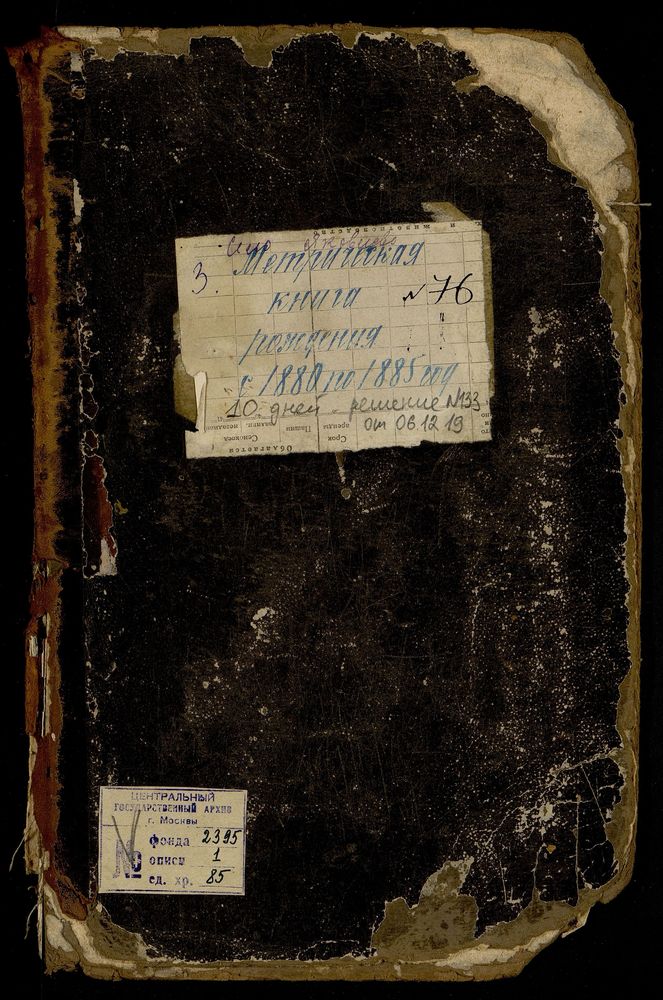 и животноводство
3. Метрическая
книга №76
рождения
с 1880 по 1885 год
10 дней - решение №133
от 06.12.19
Срок аренды
Пашни
Сенокос
Облагается
ЦЕНТРАЛЬНЫЙ
ГОСУДАРСТВЕННЫЙ АРХИВ
г. Москвы
№ фонда 2395
описи 1
ед. хр. 85